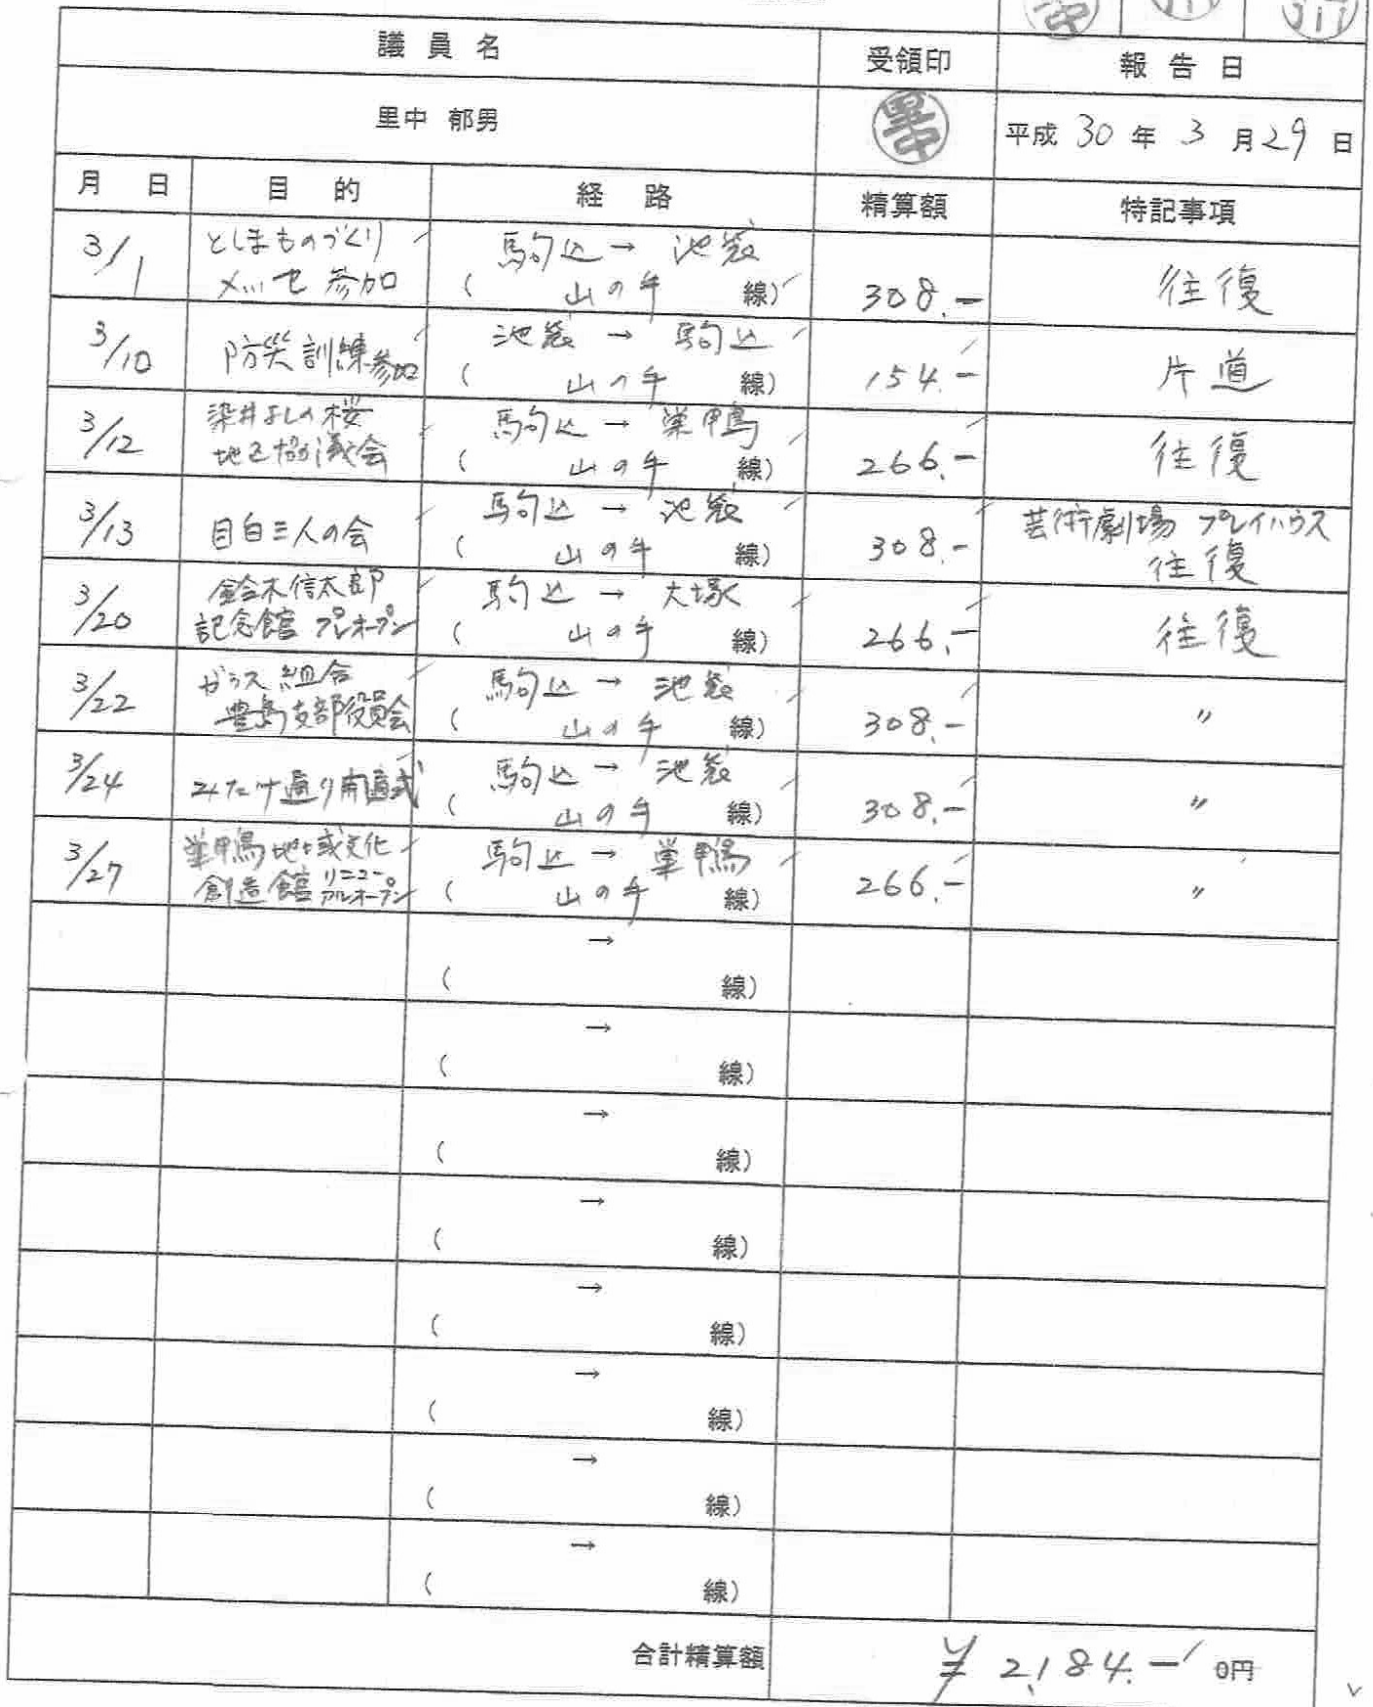 議員名 受領印 報告日
里中 郁男 里中 平成 30 年 3 月 29 日
月 日 目 的 経 路 精算額 特記事項
3/1 としまものづくり 駒込 → 池袋
メッセ参加 ( 山の手 線) 308.- 往復
3/10 防災訓練参加 池袋 → 駒込
( 山の手 線) 154.- 片道
3/12 染井よしの桜 駒込 → 巣鴨
地区協議会 ( 山の手 線) 266.- 往復
3/13 目白三人の会 駒込 → 池袋 芸術劇場 プレイハウス
( 山の手 線) 308.- 往復
3/20 鈴木信太郎 駒込 → 大塚
記念館 プレオープン ( 山の手 線) 266.- 往復
3/22 ガラス組合 駒込 → 池袋
豊島支部役員会 ( 山の手 線) 308.- 〃
3/24 みたけ通り開通式 駒込 → 池袋
( 山の手 線) 308.- 〃
3/27 巣鴨地域文化 駒込 → 巣鴨
創造館 リニューアルオープン ( 山の手 線) 266.- 〃
→
( 線)
→
( 線)
→
( 線)
→
( 線)
→
( 線)
→
( 線)
→
( 線)
→
( 線)
合計精算額 ¥2,184.- 0円